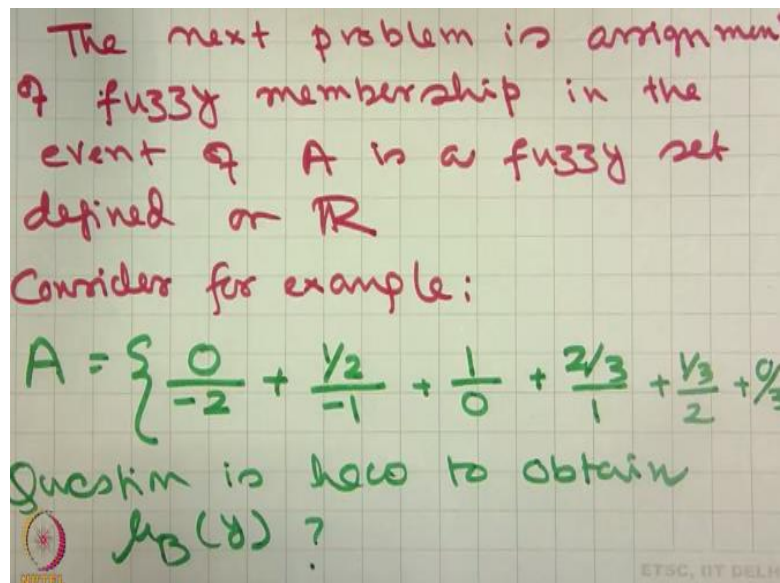 The next problem is assignmen
of fuzzy membership in the
event of A is a fuzzy set
defined on ℝ
Consider for example:
A = { 0/-2 + ½/-1 + 1/0 + 2/3/1 + 1/3/2 + 0/3
Question is how to obtain
μ_B(y) ?
ETSC, IIT DELH